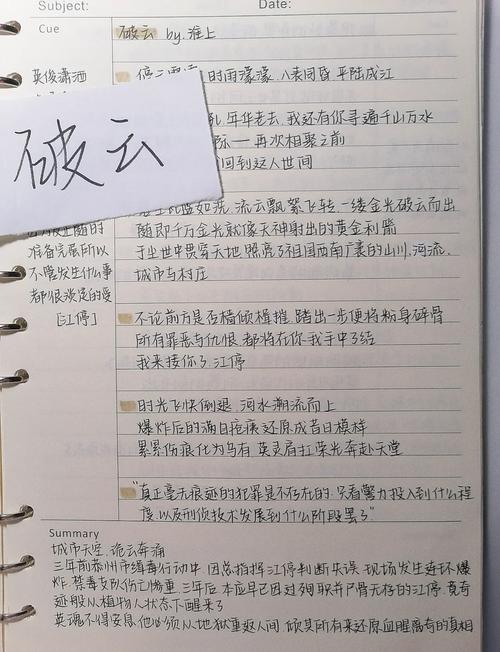 Subject:
Date:
Cue
破云 by.淮上
英俊潇洒
停云霭霭,时雨濛濛,八表同昏,平陆成江
年华老去,我还有你寻遍千山万水
再次相聚之前
回到这人世间
破云
如洗,流云飘絮飞转,一缕金光破云而出
随即千万金光就像天神射出的黄金利箭
于尘世中贯穿天地,照亮了祖国西南广袤的山川、河流、
城市与村庄
随的
准备完展所以
不管发生什么事
都很淡定的受
[江停]
不论前方是否樯倾楫摧,踏出一步便将粉身碎骨
所有罪恶与仇恨,都将在你我手中了结
我来接你了,江停
时光飞快倒退,河水溯流而上
爆炸后的满目疮痍还原成昔日模样
累累伤痕化为乌有,英灵肩扛荣光奔赴天堂
“真正毫无痕迹的犯罪是不存在的,只看警力投入到什么程
度,以及刑侦技术发展到什么阶段罢了”
Summary
城市天空,诡云奔涌
三年前恭州市缉毒行动中,因总指挥江停判断失误,现场发生连环爆
炸,禁毒支队伤亡惨重,三年后,本应早已因过殉职并尸骨无存的江停,竟奇
迹般从植物人状态下醒来了
英魂不得安息,他必须从地狱重返人间,倾其所有来还原血腥离奇的真相